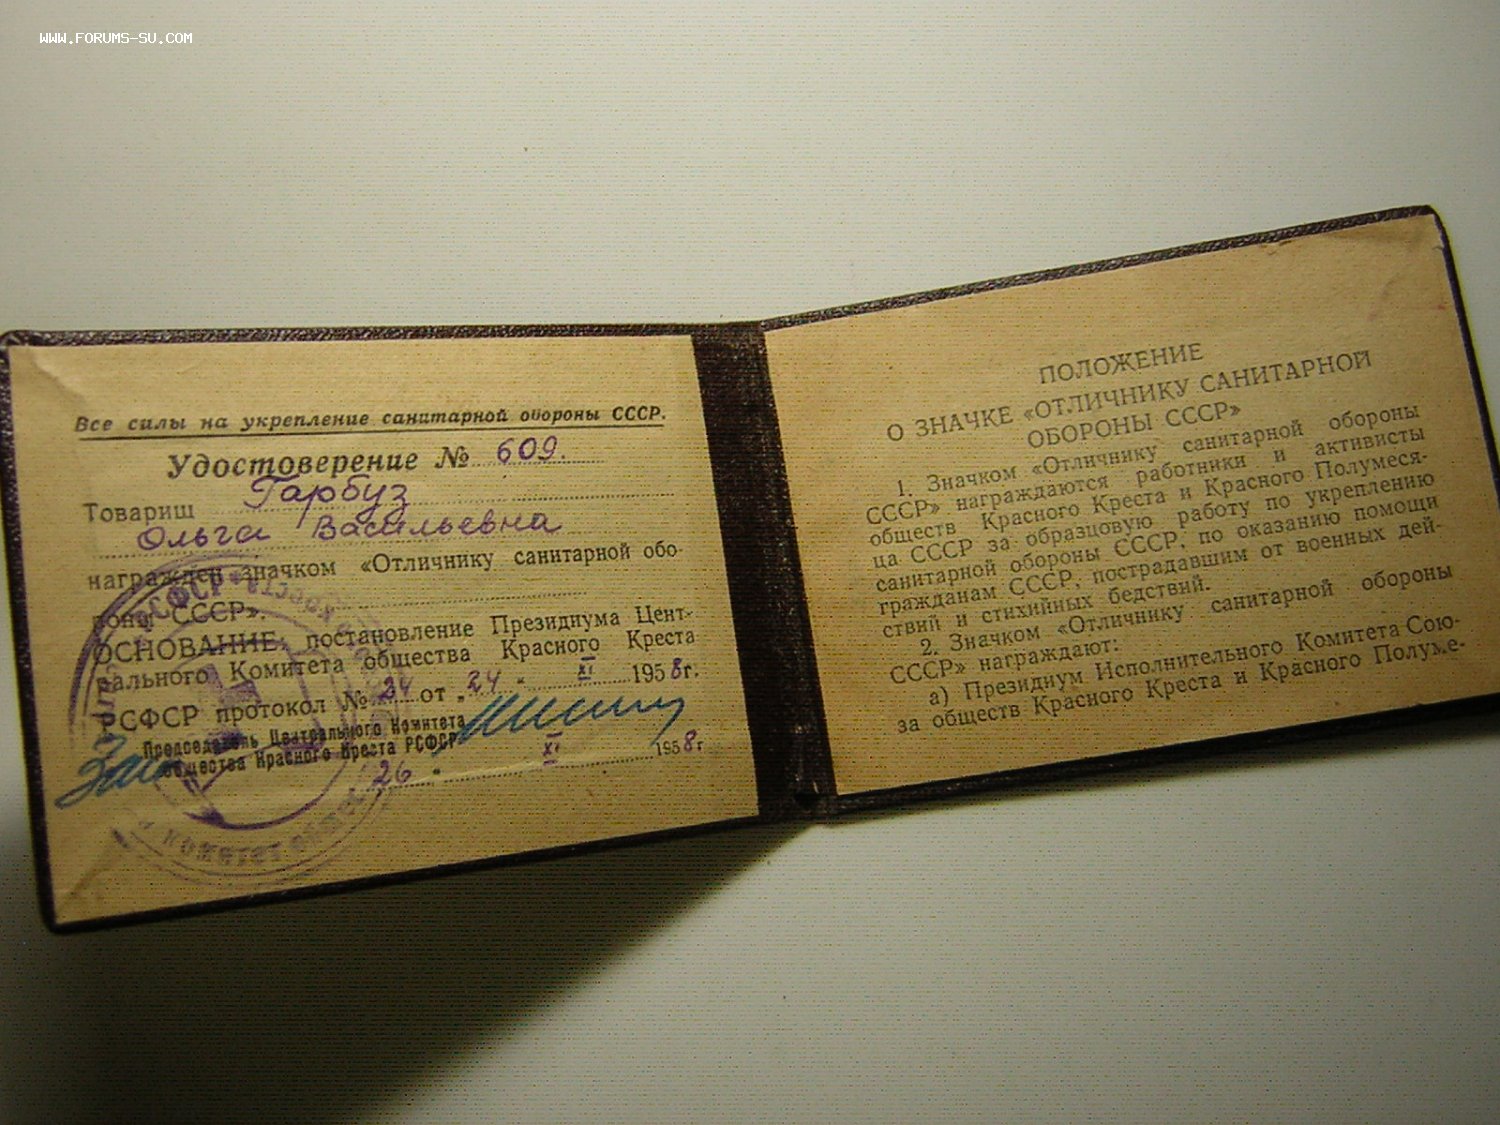 WWW.FORUMS-SU.COM
Все силы на укрепление санитарной обороны СССР.
Удостоверение № 609.
Товарищ Гарбуз
Ольга Васильевна
награжден значком «Отличнику санитарной обо-
роны СССР».
ОСНОВАНИЕ: постановление Президиума Цент-
рального Комитета общества Красного Креста
РСФСР протокол № 24 от „24" XI 1958г.
Председатель Центрального Комитета
общества Красного Креста РСФСР
26 " XI 1958г
РСФСР
комитет общес
ПОЛОЖЕНИЕ
О ЗНАЧКЕ «ОТЛИЧНИКУ САНИТАРНОЙ
ОБОРОНЫ СССР»
1. Значком «Отличнику санитарной обороны
СССР» награждаются работники и активисты
обществ Красного Креста и Красного Полумеся-
ца СССР за образцовую работу по укреплению
санитарной обороны СССР, по оказанию помощи
гражданам СССР, пострадавшим от военных дей-
ствий и стихийных бедствий.
2. Значком «Отличнику санитарной обороны
СССР» награждают:
а) Президиум Исполнительного Комитета Сою-
за обществ Красного Креста и Красного Полуме-